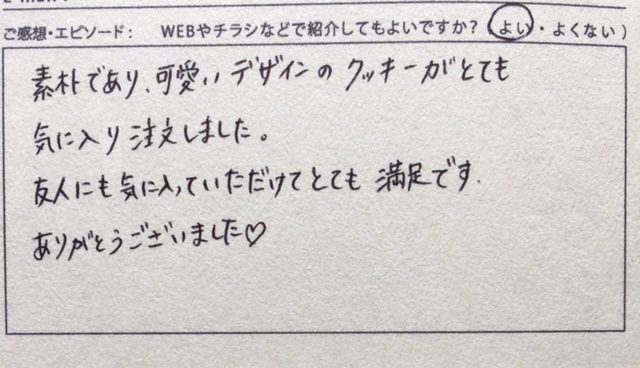 ご感想・エピソード： WEBやチラシなどで紹介してもよいですか？（よい・よくない）
素朴であり、可愛いデザインのクッキーがとても
気に入り注文しました。
友人にも気に入っていただけてとても満足です.
ありがとうございました♡